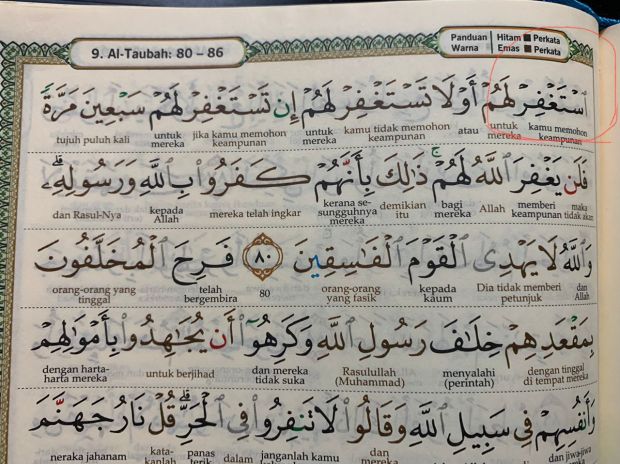 9. Al-Taubah: 80 – 86
Panduan Warna | Hitam ■ Perkata
Emas ■ Perkata
ٱسْتَغْفِرْ لَهُمْ أَوْ لَا تَسْتَغْفِرْ لَهُمْ إِن تَسْتَغْفِرْ لَهُمْ سَبْعِينَ مَرَّةً
kamu memohon keampunan untuk mereka atau kamu tidak memohon keampunan untuk mereka jika kamu memohon keampunan untuk mereka tujuh puluh kali
فَلَن يَغْفِرَ ٱللَّهُ لَهُمْ ۚ ذَٰلِكَ بِأَنَّهُمْ كَفَرُوا۟ بِٱللَّهِ وَرَسُولِهِۦ ۗ
maka tidak akan memberi keampunan Allah bagi mereka demikian itu kerana se-sungguhnya mereka mereka telah ingkar kepada Allah dan Rasul-Nya
وَٱللَّهُ لَا يَهْدِى ٱلْقَوْمَ ٱلْفَـٰسِقِينَ ٨٠ فَرِحَ ٱلْمُخَلَّفُونَ
dan Allah Dia tidak memberi petunjuk kepada kaum orang-orang yang fasik 80 telah bergembira orang-orang yang tinggal
بِمَقْعَدِهِمْ خِلَـٰفَ رَسُولِ ٱللَّهِ وَكَرِهُوٓا۟ أَن يُجَـٰهِدُوا۟ بِأَمْوَٰلِهِمْ
dengan tinggal di tempat mereka menyalahi (perintah) Rasulullah (Muhammad) dan mereka tidak suka untuk berjihad dengan harta-harta mereka
وَأَنفُسِهِمْ فِى سَبِيلِ ٱللَّهِ وَقَالُوا۟ لَا تَنفِرُوا۟ فِى ٱلْحَرِّ ۗ قُلْ نَارُ جَهَنَّمَ
dan jiwa-jiwa dan mereka janganlah kamu dalam panas terik kata-kanlah neraka jahanam